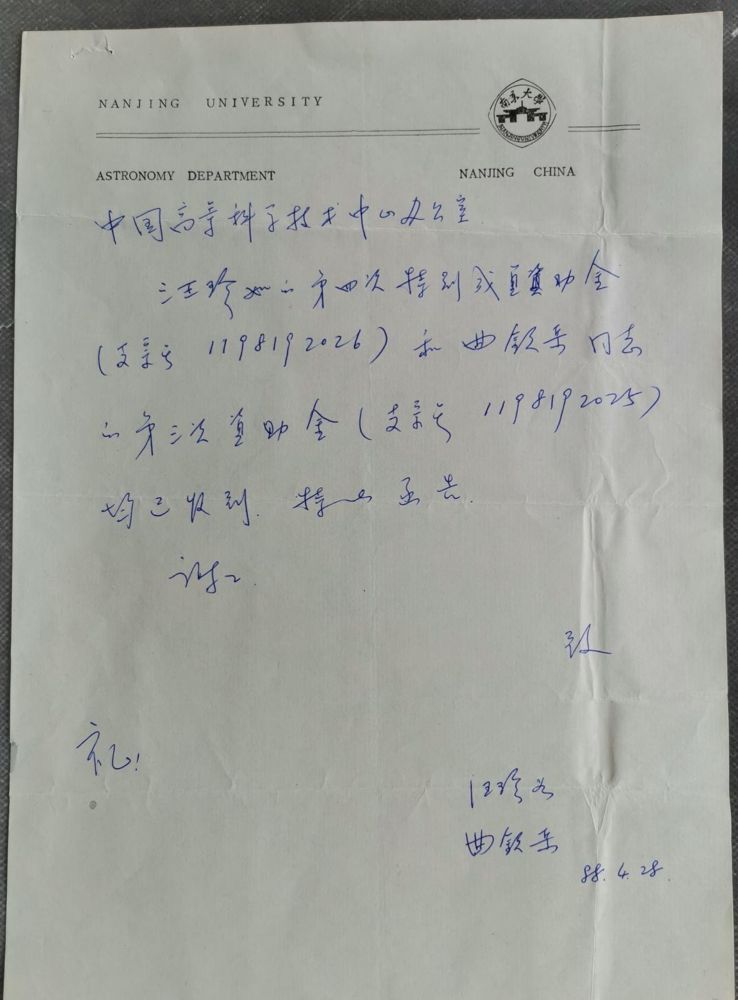 NANJING UNIVERSITY
南京大學
ASTRONOMY DEPARTMENT NANJING CHINA
中国高等科学技术中心办公室
汪珍如的第四次特别成员资助金
(支票号 1198192026) 和曲钦岳同志
的第三次资助金 (支票号 1198192025)
均已收到. 特此函告.
谢谢.
致
礼!
汪珍如
曲钦岳
88. 4. 28.